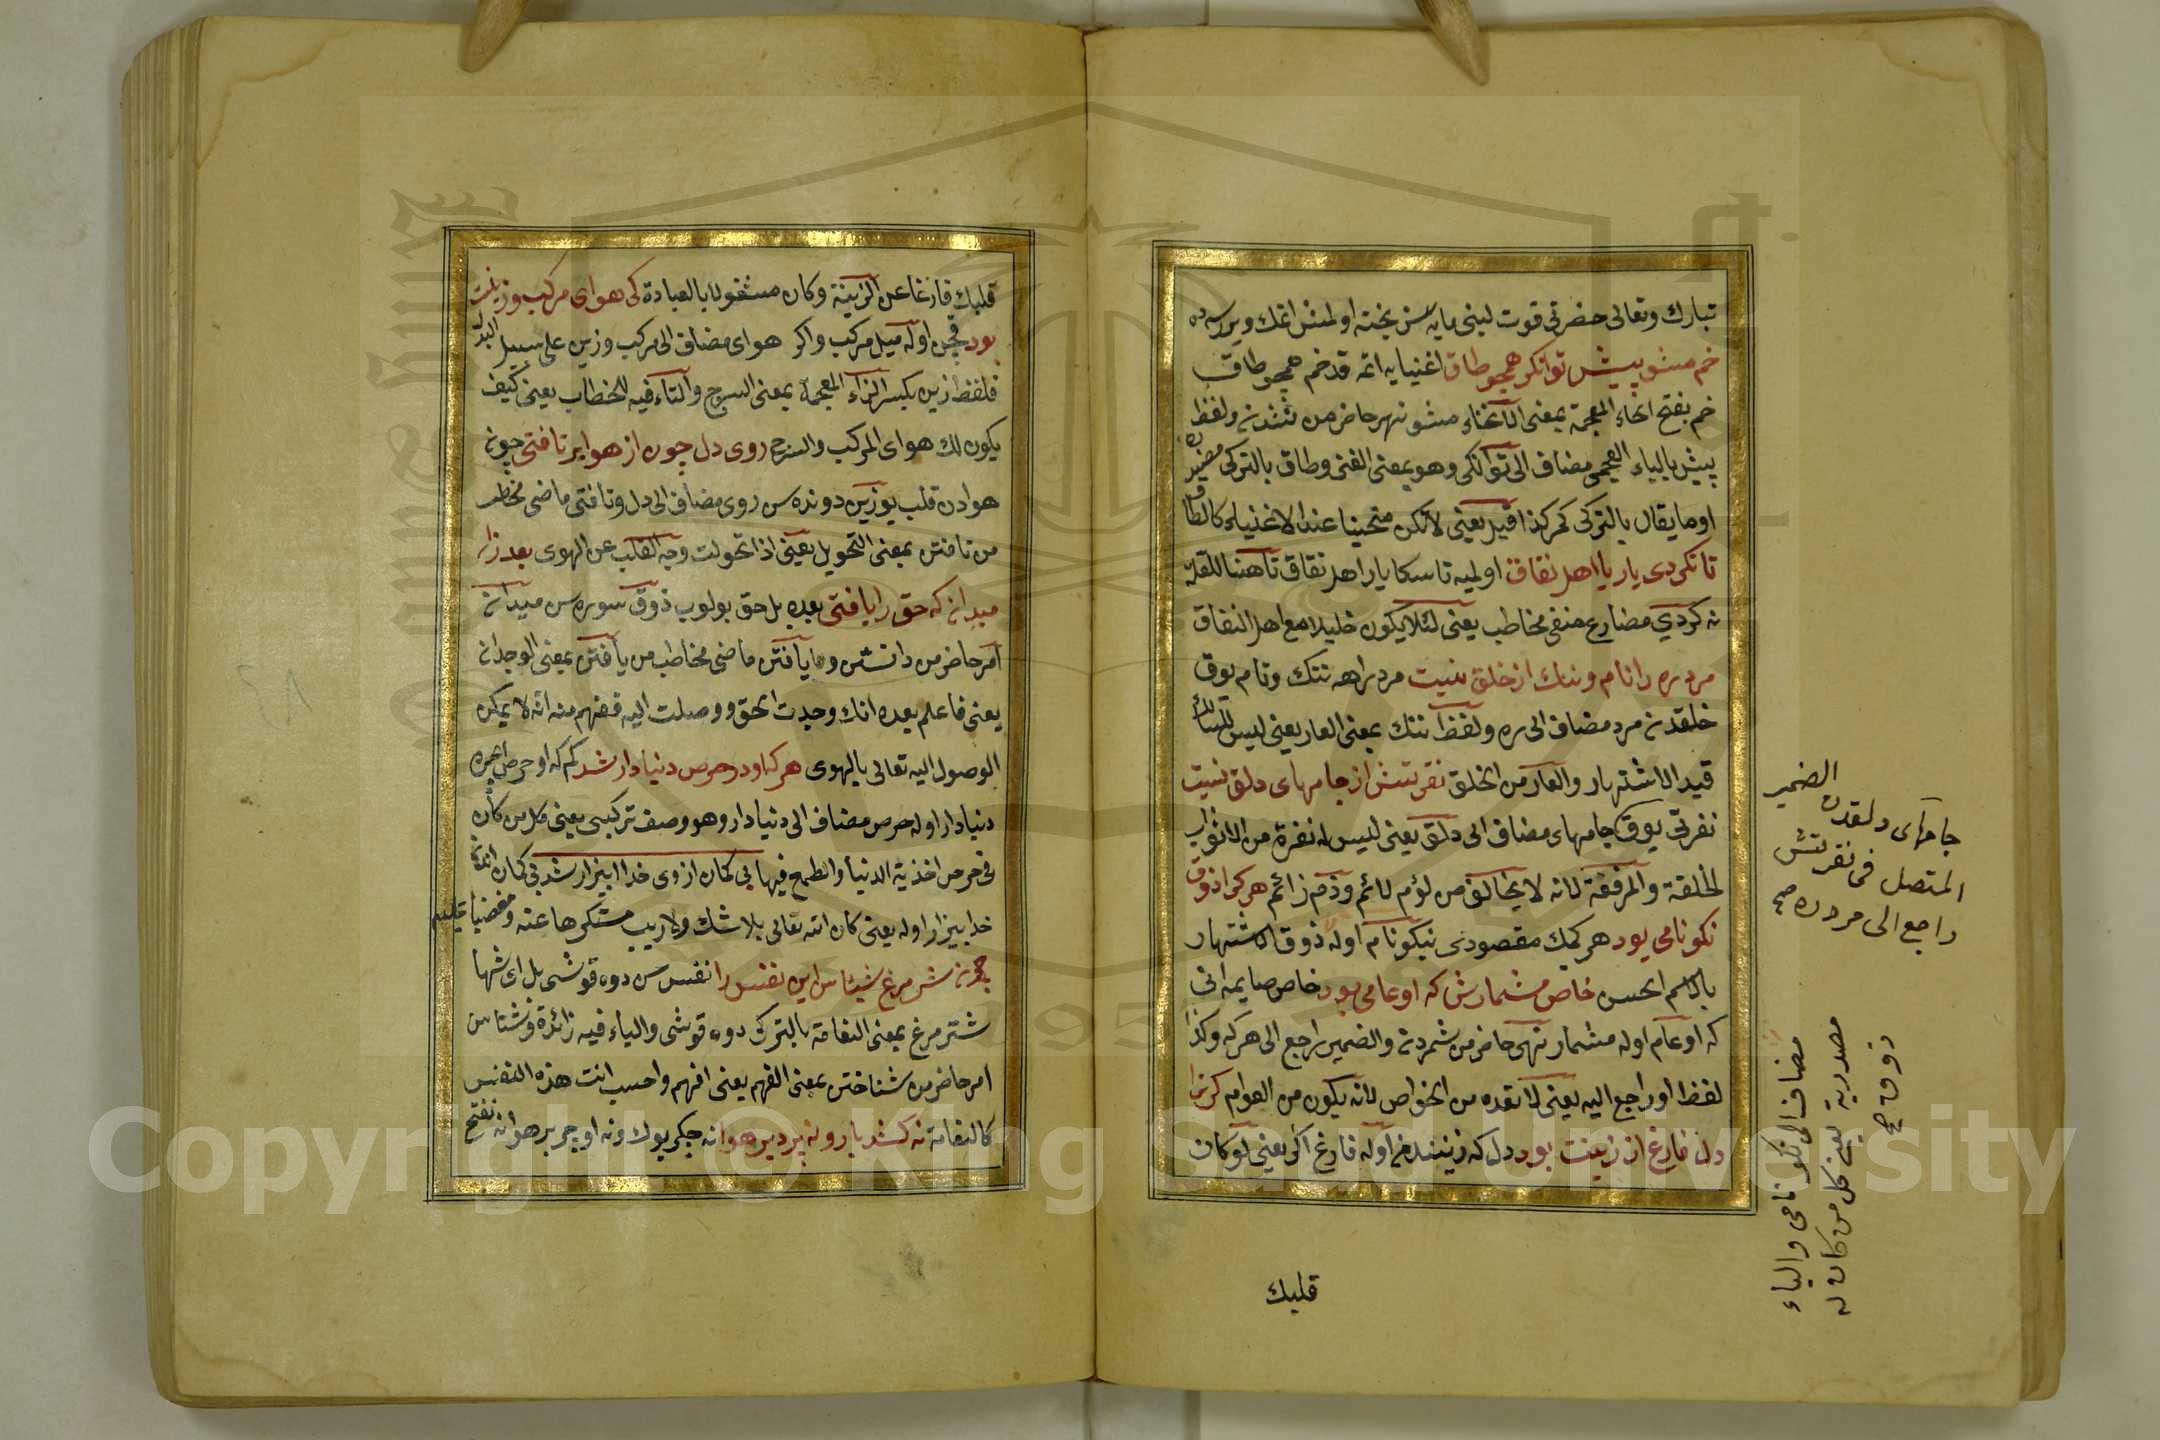 تبارك وتعالى حضرتى قوت
خم مشو پيش توانكر همچو طاق اغنيايه اتمه قد خم همچو طاق
خم بفتح الخاء المعجمة بمعنى الانحناء مشو نهى حاضر من شدن ولفظ
پيش بالياء العجمى مضاف الى توانكر وهو بمعنى الغنى وطاق بالتركى
او ما يقال بالتركى كمر كذا قيل يعنى لا تكن منحنيا عند الاغنياء كالطاق
تا نكردى يار با اهل نفاق اولميه تا سكا يار اهل نفاق تا هنا للعلة
نه كردى مضارع منفى مخاطب يعنى لئلا يكون خليلا مع اهل النفاق
مرد ره را نام وننك از خلق نيست مرد راهه ننك ونام يوق
خلقدن مرد مضاف الى ره ولفظ ننك بمعنى العار يعنى ليس للسالك
قيد الاشتهار والعار من الخلق نفرتش از جامهاى دلق نيست
نفرتى يوق جامهاى مضاف الى دلق يعنى ليس له نفرة من الاثواب
الخلقة والمرقعة لانه لا يخاف من لؤم لائم وذم زائم هركرا ذوق
نكو نامى بود هر كمك مقصودى نيكو نام اوله ذوق الاشتهار
بالاسم الحسن خاص مشمارش كه او عامى بود خاص صايمه انى
كه او عام اوله مشمار نهى حاضر من شمردن والضمير راجع الى هركه وكذا
لفظ او راجع اليه يعنى لا تعده من الخواص لانه يكون من العوام كرترا
دل فارغ از زينت بود دل كه زينتدن اوله فارغ اكر يعنى لو كان
جامهاى دلقدن الضمير
المتصل فى نفرتش
راجع الى مرد ره صح
مضاف الى نكو نامى والياء
مصدرية يعنى كل من كان له
ذوق صح
قلبك
قلبك فارغا عن الزينة وكان مشغولا بالعبادة كى هواى مركب وزينت
بود قچن اوله ميل مركب واكر هواى مضاف الى مركب وزين على سبيل البدل
فلفظ زين بكسر الزاء المعجمة بمعنى السرج والتاء فيه للخطاب يعنى كيف
يكون لك هواى المركب والسرج روى دل چون از هوا بر تافتى چون
هوادن قلب يوزين دوندرسن روى مضاف الى دل وتافتى ماضى مخاطب
من تافتن بمعنى التحويل يعنى اذا تحولت وجه القلب عن الهوى بعد زان
ميدان كه حق را يافتى بعده بل حق بولوب ذوق سوره سن ميدان
امر حاضر من دانستن ويافتى ماضى مخاطب من يافتن بمعنى الوجدان
يعنى فاعلم بعده انك وجدت الحق ووصلت اليه ففهم منه انه لا يمكن
الوصول اليه تعالى بالهوى هركه او در حرص دنيا دار شد كم كه او حرص ايچره
دنيا دار اوله حرص مضاف الى دنيا دار وهو وصف تركيبى يعنى كل من كان
فى حرص اخذية الدنيا والطمع فيها بى كمان از وى خدا بيزار شد بى كمان اندن
خدا بيزار اوله يعنى كان الله تعالى بلا شك ولا ريب مستكرها عنه ومغضبا عليه
چون شتر مرغى شناس اين نفس را نفس سن دوه قوشى بل اى شها
شتر مرغ بمعنى النعامة بالتركى دوه قوشى والياء فيه زائدة وشناس
امر حاضر من شناختن بمعنى الفهم يعنى افهم واحسب انت هذه النفس
كالنعامة نه كشد بار ونه پرد بر هوا نه چكر يوك ونه اوچر بر هوا